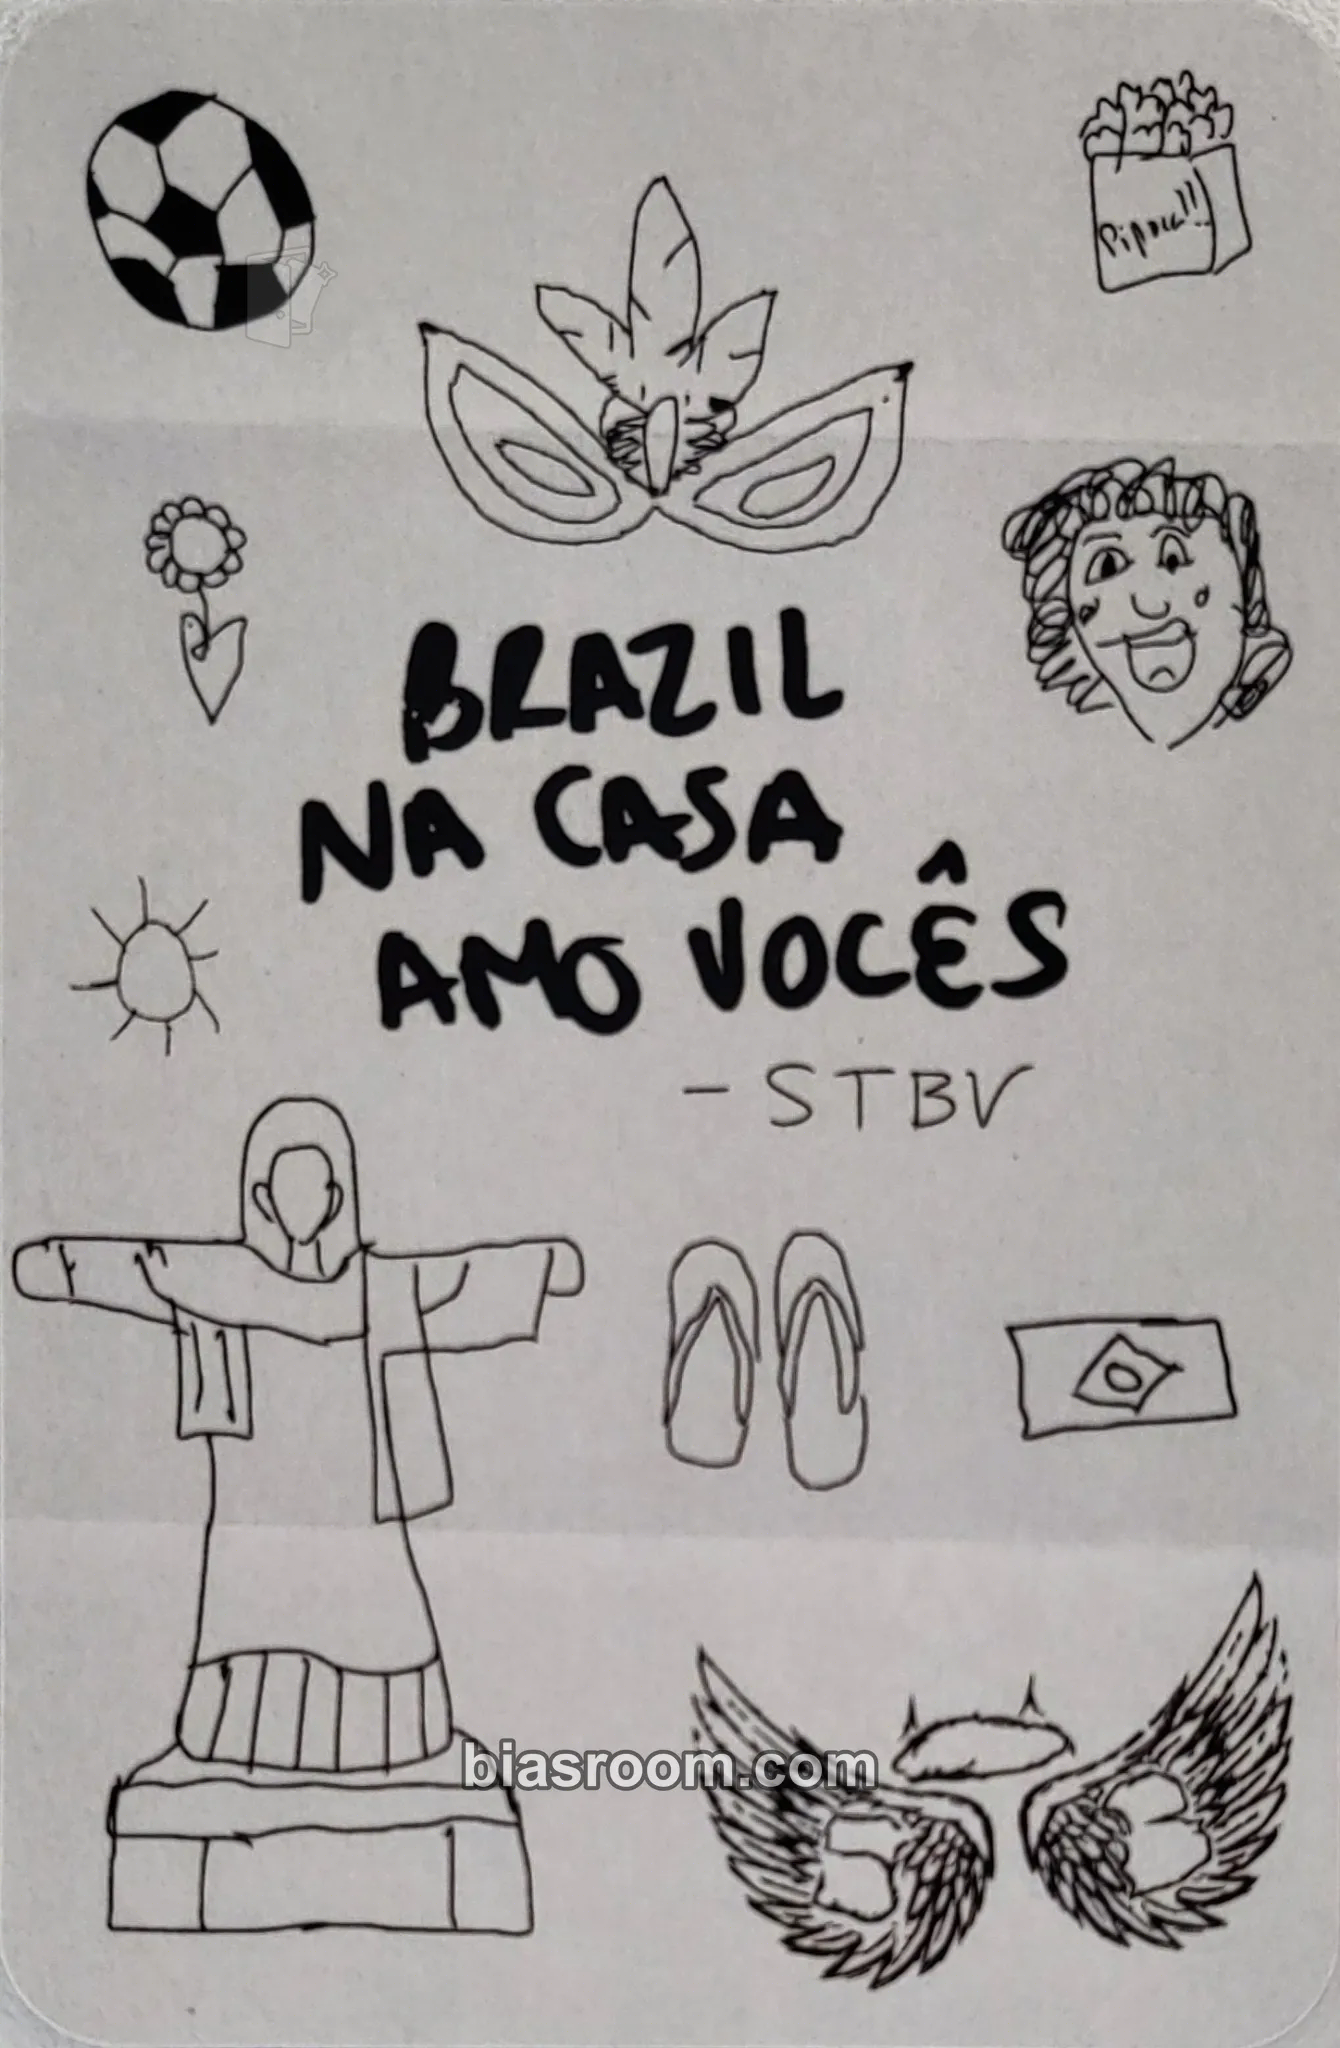 Pipoca!!
BRAZIL
NA CASA
AMO VOCÊS
- STBV
biasroom.com